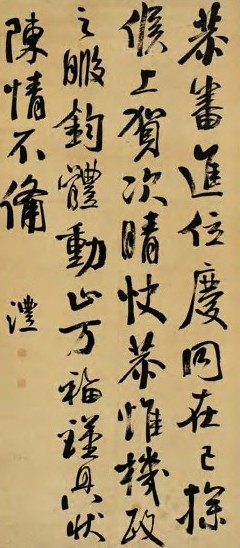 恭審進位慶同在己探
候上賀次晴快恭惟機政
之暇鈞體動止万福謹具状
陳情不備 澧